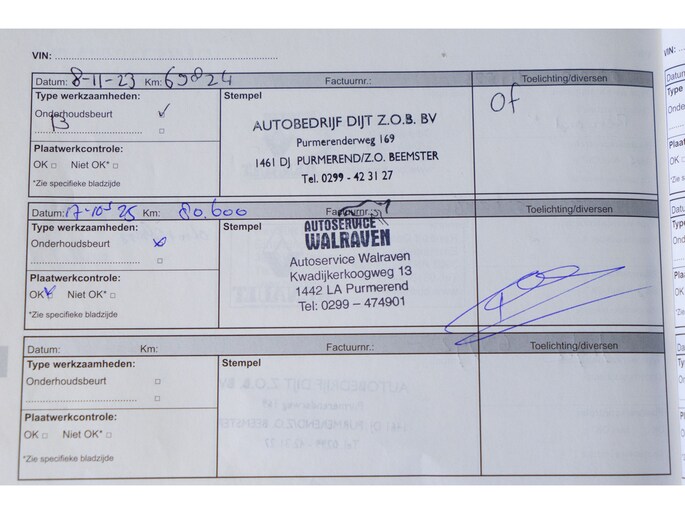 VIN: ........................................................
Datum: 8-11-23 Km: 69824 Factuurnr.: Toelichting/diversen
Type werkzaamheden:
Onderhoudsbeurt
B
Plaatwerkcontrole:
OK Niet OK*
*Zie specifieke bladzijde
Stempel
AUTOBEDRIJF DIJT Z.O.B. BV
Purmerenderweg 169
1461 DJ PURMEREND/Z.O. BEEMSTER
Tel. 0299 - 42 31 27
Of
Datum: 17-10-25 Km: 80.600 Factuurnr.: Toelichting/diversen
Type werkzaamheden:
Onderhoudsbeurt
Plaatwerkcontrole:
OK Niet OK*
*Zie specifieke bladzijde
Stempel
AUTOSERVICE
WALRAVEN
Autoservice Walraven
Kwadijkerkoogweg 13
1442 LA Purmerend
Tel: 0299 – 474901
Datum: Km: Factuurnr.: Toelichting/diversen
Type werkzaamheden:
Onderhoudsbeurt
Plaatwerkcontrole:
OK Niet OK*
*Zie specifieke bladzijde
Stempel